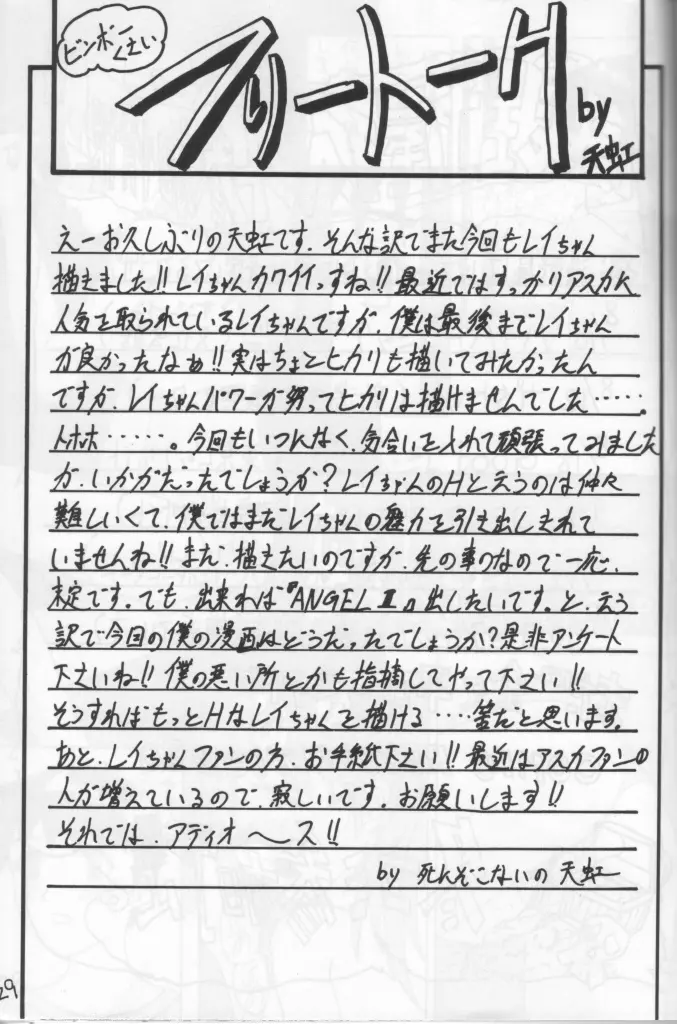 ビンボー
くさい
フリートーク
by
天虹
えーお久しぶりの天虹です.そんな訳でまた今回もレイちゃん
描きました!!レイちゃんカワイイっすね!!最近ではすっかりアスカに
人気を取られているレイちゃんですが、僕は最後までレイちゃん
が良かったなぁ!!実はちょとヒカリも描いてみたかったん
ですが、レイちゃんパワーが勝ってヒカリは描けませんでした……。
トホホ……。今回もいつになく、気合いを入れて頑張ってみました
が、いかがだったでしょうか?レイちゃんのHと云うのは仲々
難しいくて、僕ではまだレイちゃんの魅力を引き出しきれて
いませんね!!まだ、描きたいのですが、先の事なので一応、
未定です。でも、出来れば『ANGEL Ⅲ』出したいです。と、云う
訳で今回の僕の漫画はどうだったでしょうか?是非アンケート
下さいね!!僕の悪い所とかも指摘してやって下さい!!
そうすればもっとHなレイちゃんを描ける‥‥筈だと思います。
あと、レイちゃんファンの方、お手紙下さい!!最近はアスカファンの
人が増えているので、寂しいです。お願いします!!
それでは、アディオ〜ス!!
by 死んぞこないの 天虹
29